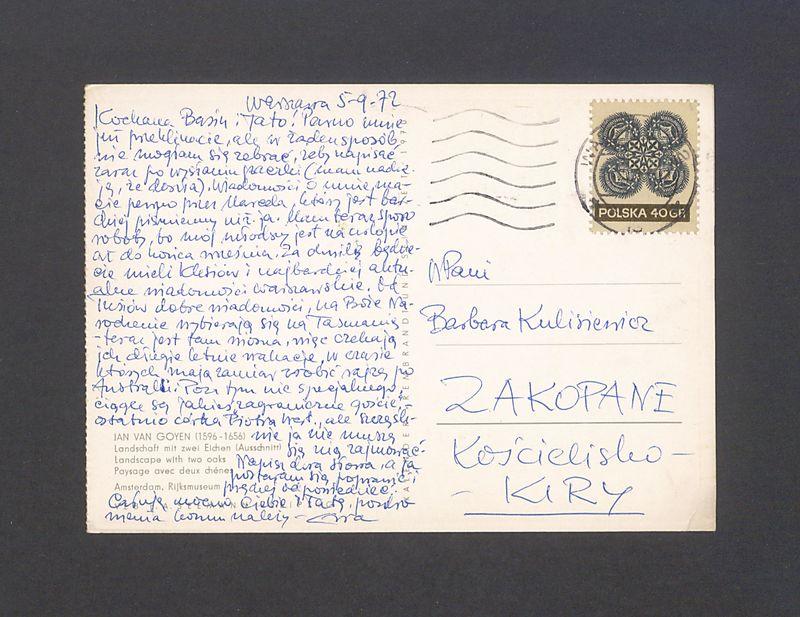 Warszawa 5-9-72
Kochana Basiu i Tato! Pewno mnie
już przeklinacie, ale w żaden sposób
nie mogłam się zebrać, żeby napisać
zaraz po wysłaniu paczki (mam nadzie-
ję, że doszła). Wiadomości o mnie ma-
cie pewno przez który jest bar-
dziej piśmienny niż ja. Mam teraz sporo
roboty, bo mój młodszy jest na urlopie
aż do końca września. Za chwilę będzie-
cie mieli i najbardziej aktu-
alne wiadomości warszawskie. Od
dobre wiadomości, na Boże Na-
rodzenie wybierają się na Tasmanię
- teraz jest tam wiosna, więc czekają
ich drugie letnie wakacje, w czasie
których mają zamiar zrobić rajzę po
Australii. Poza tym nic specjalnego,
ciągle są jakieś zagraniczne goście,
ostatnio córka Piotra ale szczęśli-
wie ja nie muszę
się nią zajmować.
Napisz dwa słowa, a ja
postaram się poprawić i
prędzej odpowiedzieć.
Całuję mocno Ciebie i Tatę, pozdro-
wienia komu należy -
JAN VAN GOYEN (1596-1656)
Landschaft mit zwei Eichen (Ausschnitt)
Landscape with two oaks
Paysage avec deux chênes
Amsterdam, Rijksmuseum
POLSKA 40 GR.
WPani
Barbara Kulisiewicz
ZAKOPANE
Kościelisko-
- KIRY